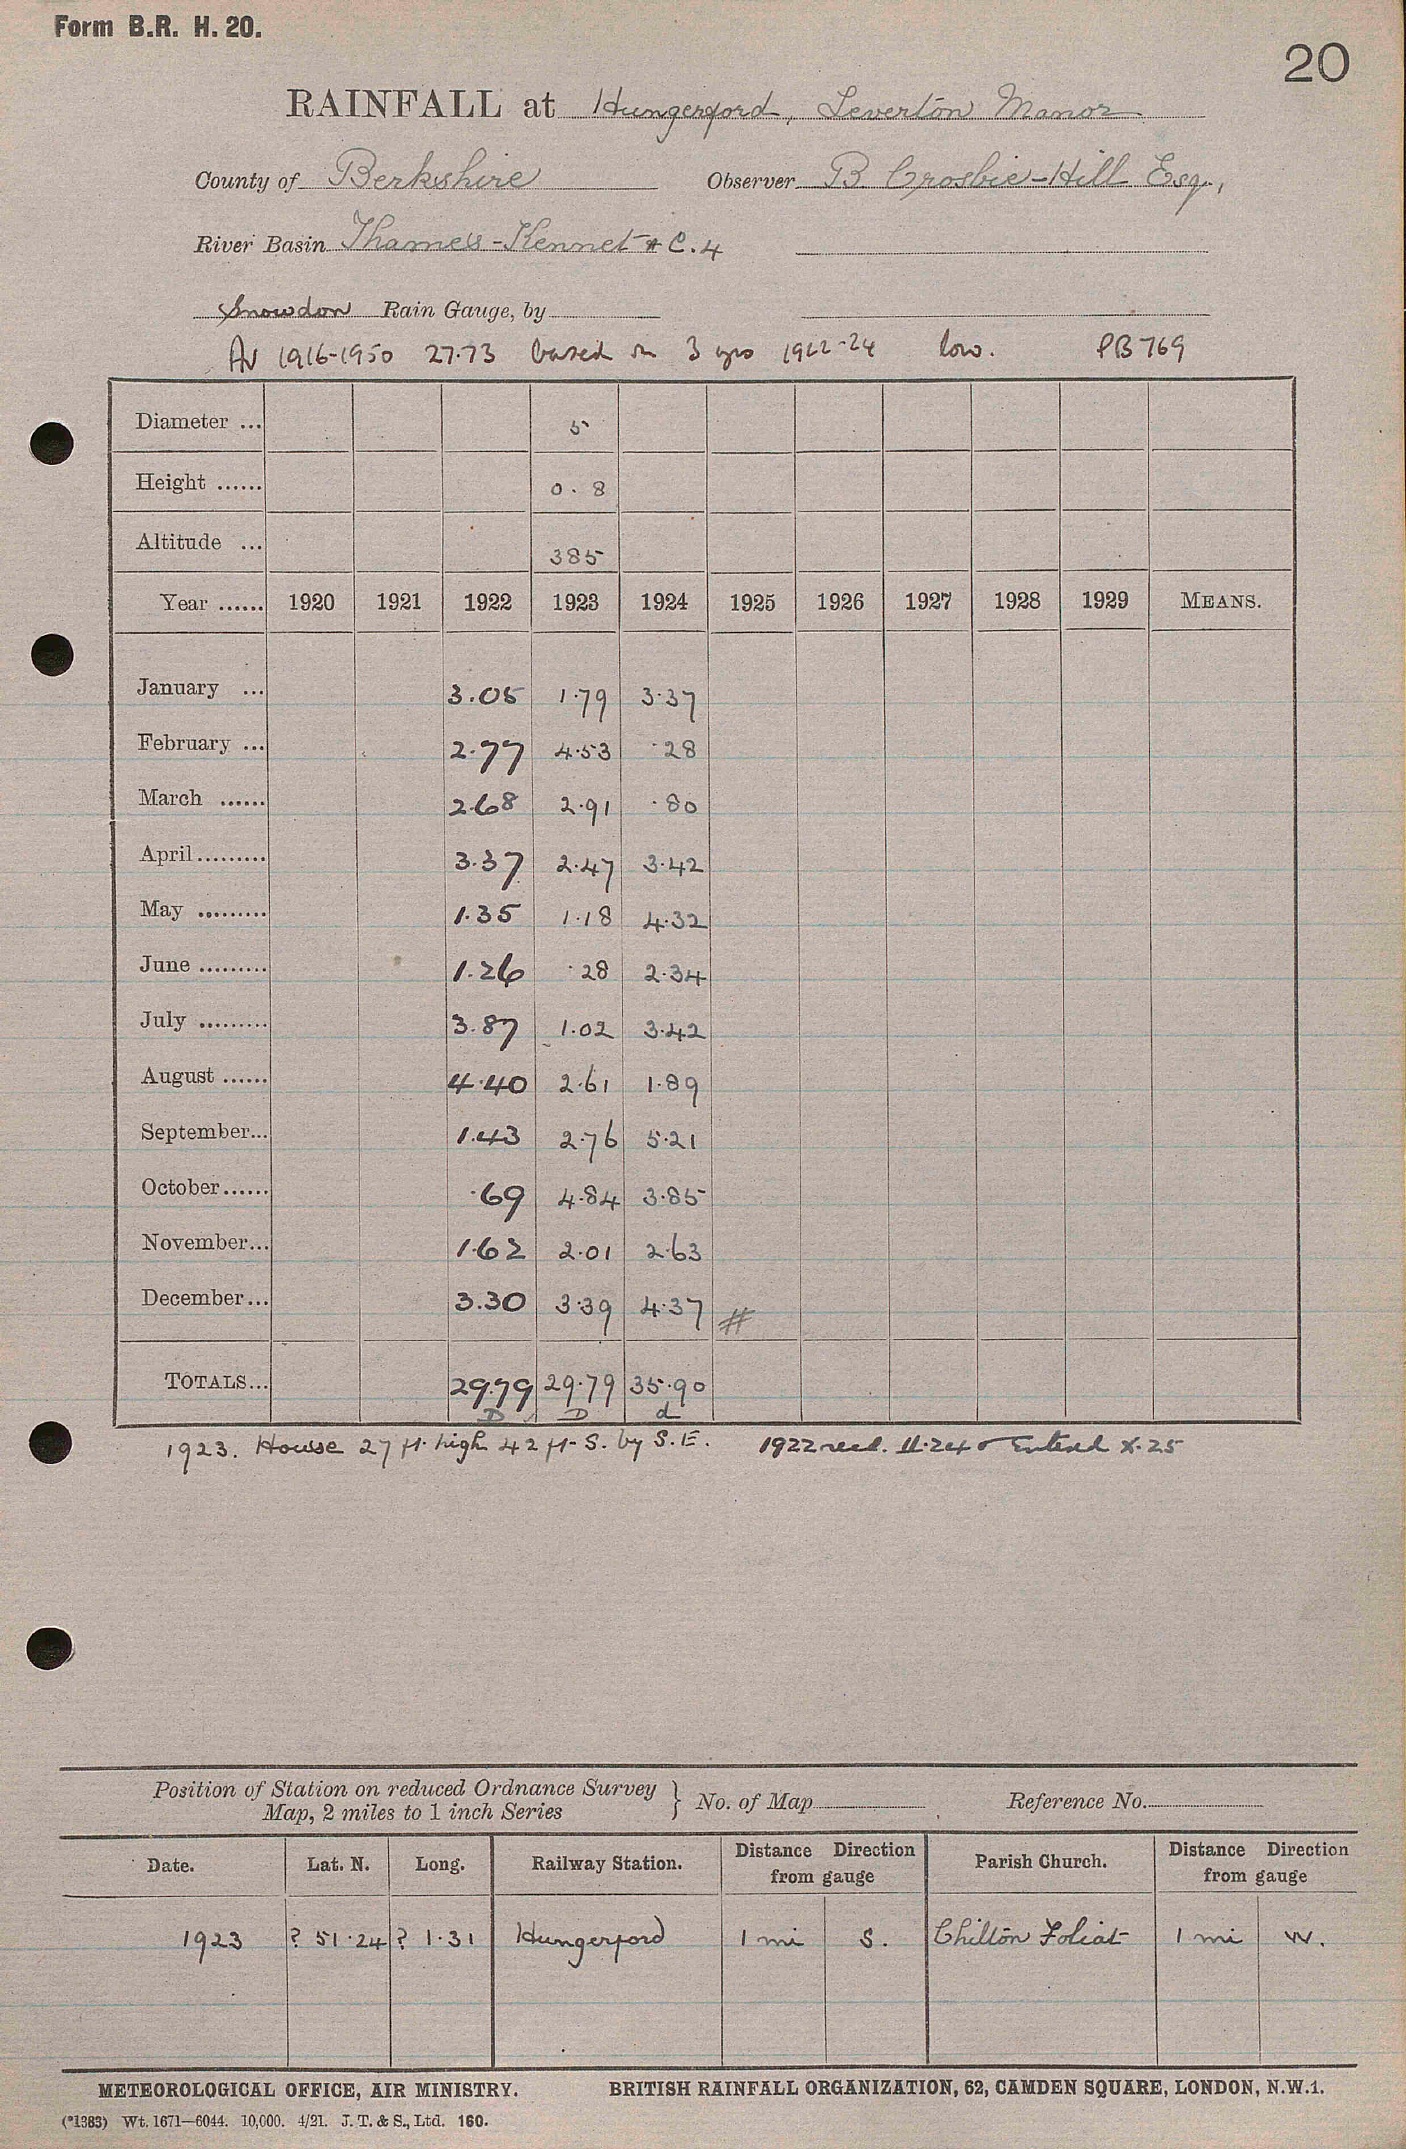 Form B.R. H. 20.
20
RAINFALL at Hungerford, Leverton Manor
County of Berkshire Observer B. Crosbie-Hill Esq.,
River Basin Thames-Kennet * C.4
Snowdon Rain Gauge, by
Av 1916-1950 27.73 based on 3 yrs 1922-24 low. PB 769
Diameter ... 5
Height ...... 0.8
Altitude ... 385
Year ...... 1920 1921 1922 1923 1924 1925 1926 1927 1928 1929 MEANS.
January ... 3.05 1.79 3.37
February ... 2.77 4.53 .28
March ...... 2.68 2.91 .80
April ......... 3.37 2.47 3.42
May ......... 1.35 1.18 4.32
June ......... 1.26 .28 2.34
July ......... 3.87 1.02 3.42
August ...... 4.40 2.61 1.89
September... 1.43 2.76 5.21
October...... .69 4.84 3.85
November... 1.62 2.01 2.63
December... 3.30 3.39 4.37 #
TOTALS... 29.79 29.79 35.90
D D d
1923. House 27 ft. high 42 ft. S. by S.E. 1922 recd. 11.24 Entered X.25
Position of Station on reduced Ordnance Survey
Map, 2 miles to 1 inch Series } No. of Map Reference No.
Date. Lat. N. Long. Railway Station. Distance Direction from gauge Parish Church. Distance Direction from gauge
1923 ? 51.24 ? 1.31 Hungerford 1 mi S. Chilton Foliat 1 mi W.
METEOROLOGICAL OFFICE, AIR MINISTRY. BRITISH RAINFALL ORGANIZATION, 62, CAMDEN SQUARE, LONDON, N.W.1.
(*1383) Wt. 1671—6044. 10,000. 4/21. J. T. & S., Ltd. 160.